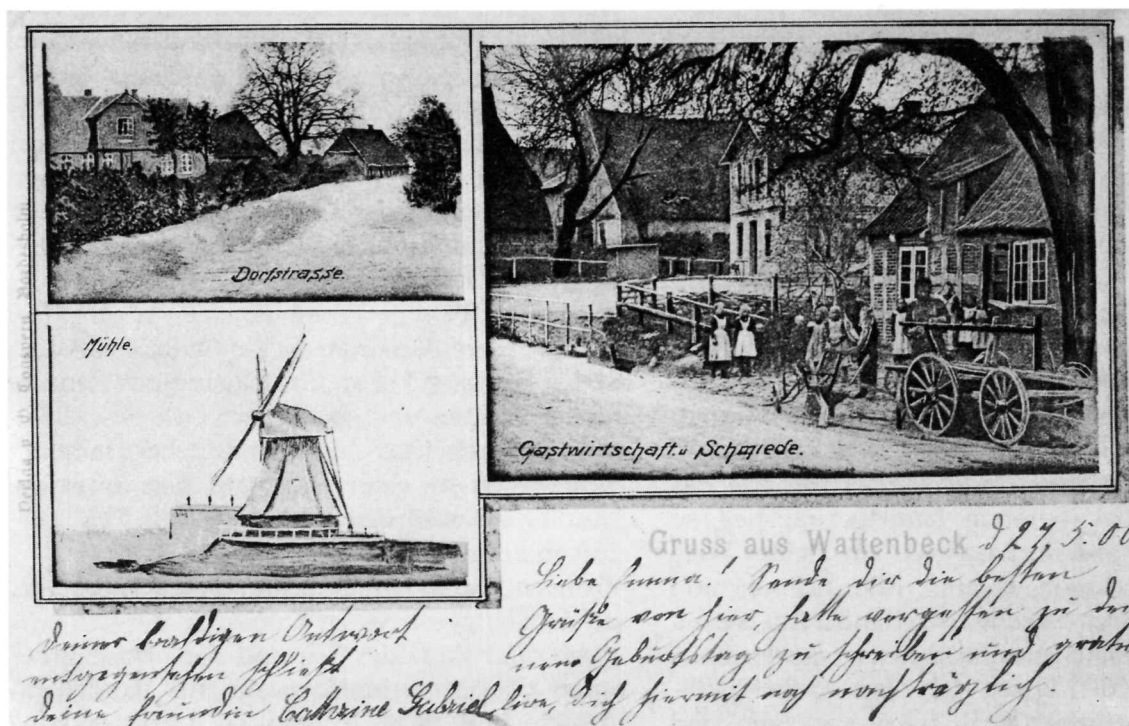 Dorfstrasse.
Mühle.
Gastwirtschaft. u Schmiede.
Gruss aus Wattenbeck
d 27. 5. 00
Liebe Emma! Sende dir die besten
Grüße von hier, hatte vergessen zu dei
nem Geburtstag zu schreiben und gratu
lire, dich hiermit noch nachträglich
Deiner baldigen Antwort
entgegensehen schließt
deine freundin Cathrine Gabriel